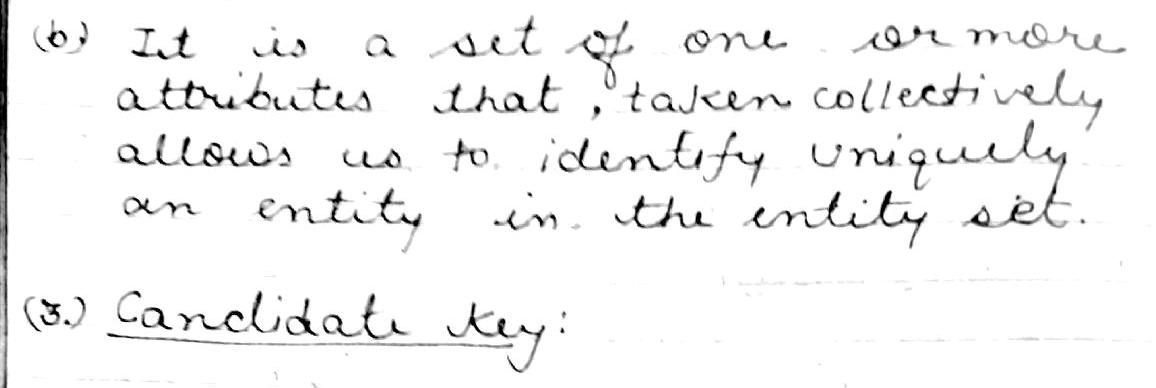 (b) It is a set of one or more
attributes that, taken collectively
allows us to identify uniquely
an entity in the entity set.
(3.) Candidate key: